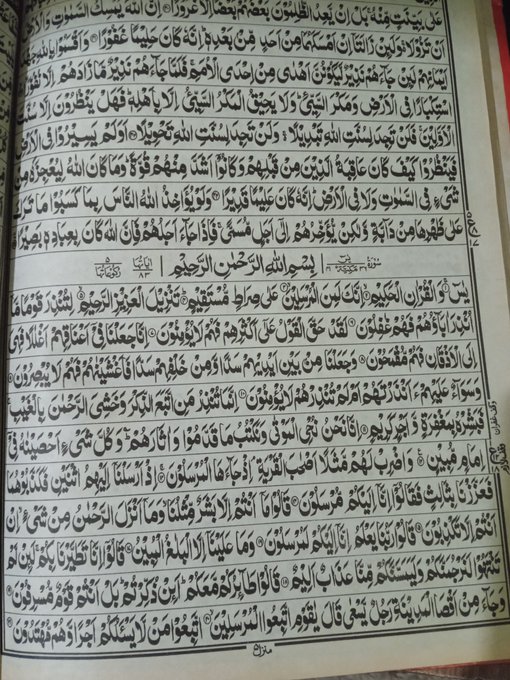 عَلٰى بَيِّنَتٍ مِّنْهُ ۚ بَلْ اِنْ يَّعِدُ الظّٰلِمُوْنَ بَعْضُهُمْ بَعْضًا اِلَّا غُرُوْرًا ۞ اِنَّ اللّٰهَ يُمْسِكُ السَّمٰوٰتِ
اَنْ تَزُوْلَا ۚ وَلَئِنْ زَالَتَآ اِنْ اَمْسَكَهُمَا مِنْ اَحَدٍ مِّنْۢ بَعْدِهٖ ؕ اِنَّهٗ كَانَ حَلِيْمًا غَفُوْرًا ۞ وَاَقْسَمُوْا بِاللّٰهِ
اَيْمَانِهِمْ لَئِنْ جَآءَهُمْ نَذِيْرٌ لَّيَكُوْنُنَّ اَهْدٰى مِنْ اِحْدَى الْاُمَمِ ۚ فَلَمَّا جَآءَهُمْ نَذِيْرٌ مَّا زَادَهُمْ اِلَّا نُفُوْرًا
اسْتِكْبَارًا فِى الْاَرْضِ وَمَكْرَ السَّيِّئِ ؕ وَلَا يَحِيْقُ الْمَكْرُ السَّيِّئُ اِلَّا بِاَهْلِهٖ ؕ فَهَلْ يَنْظُرُوْنَ اِلَّا سُنَّتَ
الْاَوَّلِيْنَ ۚ فَلَنْ تَجِدَ لِسُنَّتِ اللّٰهِ تَبْدِيْلًا ۚ وَلَنْ تَجِدَ لِسُنَّتِ اللّٰهِ تَحْوِيْلًا ۞ اَوَلَمْ يَسِيْرُوْا فِى الْاَرْضِ
فَيَنْظُرُوْا كَيْفَ كَانَ عَاقِبَةُ الَّذِيْنَ مِنْ قَبْلِهِمْ وَكَانُوْٓا اَشَدَّ مِنْهُمْ قُوَّةً ؕ وَمَا كَانَ اللّٰهُ لِيُعْجِزَهٗ مِنْ
شَىْءٍ فِى السَّمٰوٰتِ وَلَا فِى الْاَرْضِ ؕ اِنَّهٗ كَانَ عَلِيْمًا قَدِيْرًا ۞ وَلَوْ يُؤَاخِذُ اللّٰهُ النَّاسَ بِمَا كَسَبُوْا مَا تَرَكَ
عَلٰى ظَهْرِهَا مِنْ دَآبَّةٍ وَّلٰكِنْ يُّؤَخِّرُهُمْ اِلٰٓى اَجَلٍ مُّسَمًّى ۚ فَاِذَا جَآءَ اَجَلُهُمْ فَاِنَّ اللّٰهَ كَانَ بِعِبَادِهٖ بَصِيْرًا
سُوْرَةُ يٰسٓ مَكِّيَّةٌ بِسْمِ اللّٰهِ الرَّحْمٰنِ الرَّحِيْمِ اٰيَاتُهَا ٨٣ رُكُوْعَاتُهَا ٥
يٰسٓ ۞ وَالْقُرْاٰنِ الْحَكِيْمِ ۞ اِنَّكَ لَمِنَ الْمُرْسَلِيْنَ ۞ عَلٰى صِرَاطٍ مُّسْتَقِيْمٍ ۞ تَنْزِيْلَ الْعَزِيْزِ الرَّحِيْمِ ۞ لِتُنْذِرَ قَوْمًا مَّآ
اُنْذِرَ اٰبَآؤُهُمْ فَهُمْ غٰفِلُوْنَ ۞ لَقَدْ حَقَّ الْقَوْلُ عَلٰٓى اَكْثَرِهِمْ فَهُمْ لَا يُؤْمِنُوْنَ ۞ اِنَّا جَعَلْنَا فِىْٓ اَعْنَاقِهِمْ اَغْلٰلًا فَهِىَ
اِلَى الْاَذْقَانِ فَهُمْ مُّقْمَحُوْنَ ۞ وَجَعَلْنَا مِنْۢ بَيْنِ اَيْدِيْهِمْ سَدًّا وَّمِنْ خَلْفِهِمْ سَدًّا فَاَغْشَيْنٰهُمْ فَهُمْ لَا يُبْصِرُوْنَ ۞
وَسَوَآءٌ عَلَيْهِمْ ءَاَنْذَرْتَهُمْ اَمْ لَمْ تُنْذِرْهُمْ لَا يُؤْمِنُوْنَ ۞ اِنَّمَا تُنْذِرُ مَنِ اتَّبَعَ الذِّكْرَ وَخَشِىَ الرَّحْمٰنَ بِالْغَيْبِ ۚ
فَبَشِّرْهُ بِمَغْفِرَةٍ وَّاَجْرٍ كَرِيْمٍ ۞ اِنَّا نَحْنُ نُحْىِ الْمَوْتٰى وَنَكْتُبُ مَا قَدَّمُوْا وَاٰثَارَهُمْ ؕ وَكُلَّ شَىْءٍ اَحْصَيْنٰهُ فِىْٓ
اِمَامٍ مُّبِيْنٍ ۞ وَاضْرِبْ لَهُمْ مَّثَلًا اَصْحٰبَ الْقَرْيَةِ ۘ اِذْ جَآءَهَا الْمُرْسَلُوْنَ ۞ اِذْ اَرْسَلْنَآ اِلَيْهِمُ اثْنَيْنِ فَكَذَّبُوْهُمَا
فَعَزَّزْنَا بِثَالِثٍ فَقَالُوْٓا اِنَّآ اِلَيْكُمْ مُّرْسَلُوْنَ ۞ قَالُوْا مَآ اَنْتُمْ اِلَّا بَشَرٌ مِّثْلُنَا ۙ وَمَآ اَنْزَلَ الرَّحْمٰنُ مِنْ شَىْءٍ ۙ اِنْ
اَنْتُمْ اِلَّا تَكْذِبُوْنَ ۞ قَالُوْا رَبُّنَا يَعْلَمُ اِنَّآ اِلَيْكُمْ لَمُرْسَلُوْنَ ۞ وَمَا عَلَيْنَآ اِلَّا الْبَلٰغُ الْمُبِيْنُ ۞ قَالُوْٓا اِنَّا تَطَيَّرْنَا بِكُمْ ۚ لَئِنْ لَّمْ
تَنْتَهُوْا لَنَرْجُمَنَّكُمْ وَلَيَمَسَّنَّكُمْ مِّنَّا عَذَابٌ اَلِيْمٌ ۞ قَالُوْا طَآئِرُكُمْ مَّعَكُمْ ؕ اَئِنْ ذُكِّرْتُمْ ؕ بَلْ اَنْتُمْ قَوْمٌ مُّسْرِفُوْنَ ۞
وَجَآءَ مِنْ اَقْصَا الْمَدِيْنَةِ رَجُلٌ يَّسْعٰى قَالَ يٰقَوْمِ اتَّبِعُوا الْمُرْسَلِيْنَ ۞ اتَّبِعُوْا مَنْ لَّا يَسْئَلُكُمْ اَجْرًا وَّهُمْ مُّهْتَدُوْنَ ۞
منزل ٥